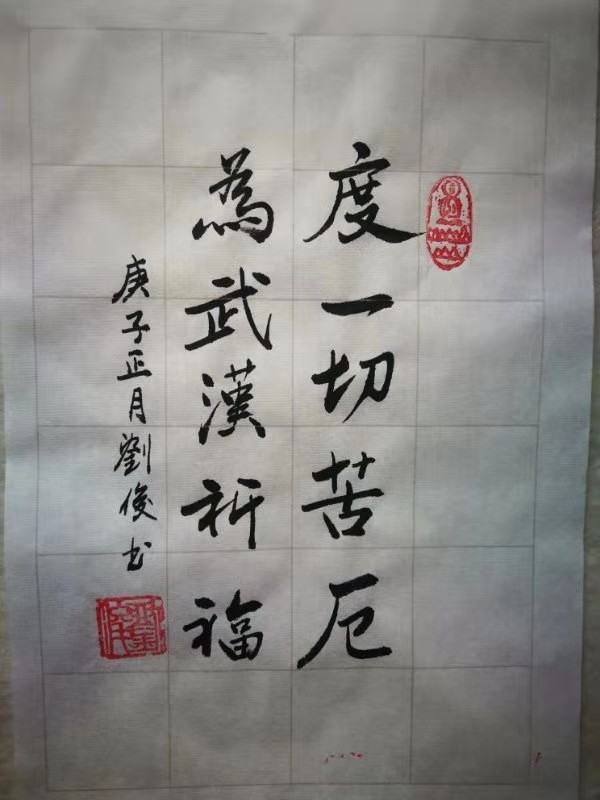 度一切苦厄
為武漢祈福
庚子正月劉俊书